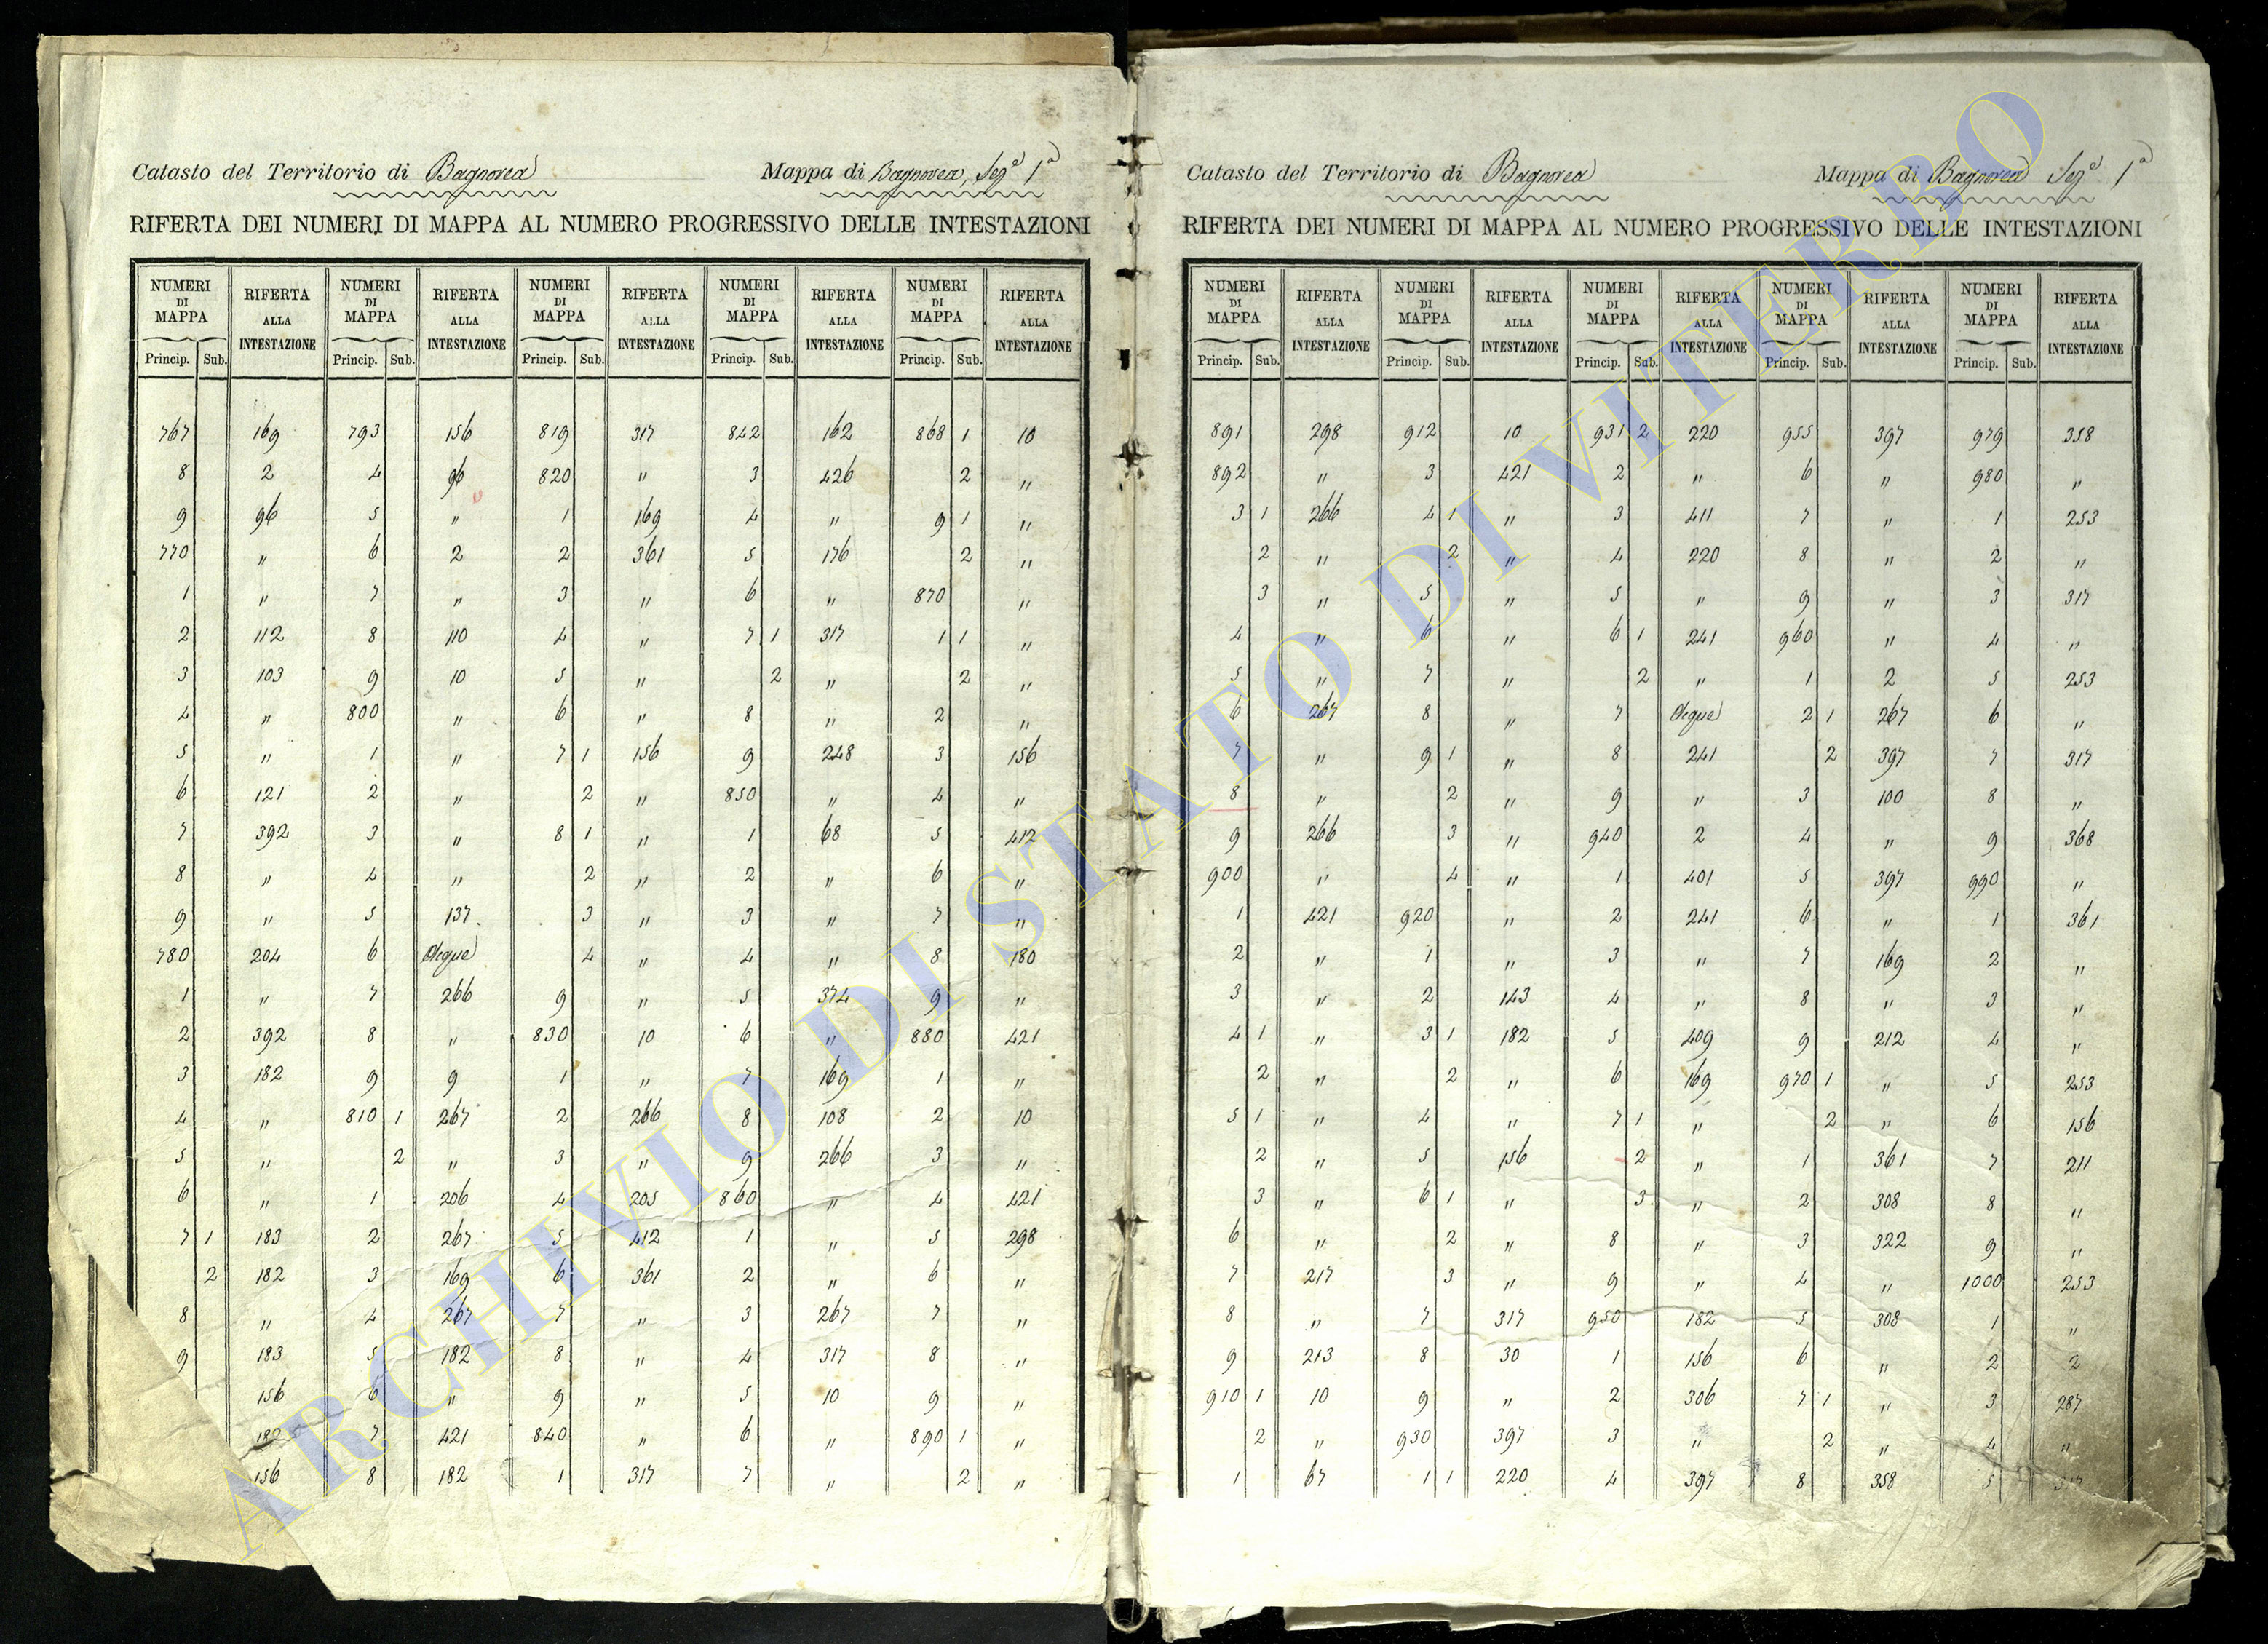 Catasto del Territorio di Bagnorea Mappa di Bagnorea, Sez.e 1a
RIFERTA DEI NUMERI DI MAPPA AL NUMERO PROGRESSIVO DELLE INTESTAZIONI
NUMERI DI MAPPA RIFERTA ALLA INTESTAZIONE NUMERI DI MAPPA RIFERTA ALLA INTESTAZIONE NUMERI DI MAPPA RIFERTA ALLA INTESTAZIONE NUMERI DI MAPPA RIFERTA ALLA INTESTAZIONE NUMERI DI MAPPA RIFERTA ALLA INTESTAZIONE
Princip. Sub. Princip. Sub. Princip. Sub. Princip. Sub. Princip. Sub.
767 169 793 156 819 317 842 162 868 1 10
8 2 4 96 820 " 3 426 2 "
9 96 5 " 1 169 4 " 9 1 "
770 " 6 2 2 361 5 176 2 "
1 " 7 " 3 " 6 " 870 "
2 112 8 110 4 " 7 1 317 1 1 "
3 103 9 10 5 " 2 " 2 "
4 " 800 " 6 " 8 " 2 "
5 " 1 " 7 1 156 9 248 3 156
6 121 2 " 2 " 850 " 4 "
7 392 3 " 8 1 " 1 68 5 412
8 " 4 " 2 " 2 " 6 "
9 " 5 137 3 " 3 " 7 "
780 204 6 Segue 4 " 4 " 8 180
1 " 7 266 9 " 5 374 9 "
2 392 8 " 830 10 6 " 880 421
3 182 9 9 1 " 7 169 1 "
4 " 810 1 267 2 266 8 108 2 10
5 " 2 " 3 " 9 266 3 "
6 " 1 206 4 205 860 " 4 421
7 1 183 2 267 5 412 1 " 5 298
2 182 3 169 6 361 2 " 6 "
8 " 4 267 7 " 3 267 7 "
9 183 5 182 8 " 4 317 8 "
156 6 " 9 " 5 10 9 "
182 7 421 840 " 6 " 890 1 "
156 8 182 1 317 7 " 2 "
Catasto del Territorio di Bagnorea Mappa di Bagnorea Sez.e 1a
RIFERTA DEI NUMERI DI MAPPA AL NUMERO PROGRESSIVO DELLE INTESTAZIONI
NUMERI DI MAPPA RIFERTA ALLA INTESTAZIONE NUMERI DI MAPPA RIFERTA ALLA INTESTAZIONE NUMERI DI MAPPA RIFERTA ALLA INTESTAZIONE NUMERI DI MAPPA RIFERTA ALLA INTESTAZIONE NUMERI DI MAPPA RIFERTA ALLA INTESTAZIONE
Princip. Sub. Princip. Sub. Princip. Sub. Princip. Sub. Princip. Sub.
891 298 912 10 931 2 220 955 397 979 358
892 " 3 421 2 " 6 " 980 "
3 1 266 4 1 " 3 411 7 " 1 253
2 " 2 " 4 220 8 " 2 "
3 " 5 " 5 " 9 " 3 317
4 " 6 " 6 1 241 960 " 4 "
5 " 7 " 2 " 1 2 5 253
6 267 8 " 7 Segue 2 1 267 6 "
7 " 9 1 " 8 241 2 397 7 317
8 " 2 " 9 " 3 100 8 "
9 266 3 " 940 2 4 " 9 368
900 " 4 " 1 401 5 397 990 "
1 421 920 " 2 241 6 " 1 361
2 " 1 " 3 " 7 169 2 "
3 " 2 143 4 " 8 " 3 "
4 1 " 3 1 182 5 409 9 212 4 "
2 " 2 " 6 169 970 1 " 5 253
5 1 " 4 " 7 1 " 2 " 6 156
2 " 5 156 2 " 1 361 7 211
3 " 6 1 " 3 " 2 308 8 "
6 " 2 " 8 " 3 322 9 "
7 217 3 " 9 " 4 " 1000 253
8 " 7 317 950 182 5 308 1 "
9 213 8 30 1 156 6 " 2 2
910 1 10 9 " 2 306 7 1 " 3 287
2 " 930 397 3 " 2 " 4 "
1 67 1 1 220 4 397 8 358 5
ARCHIVIO DI STATO DI VITERBO